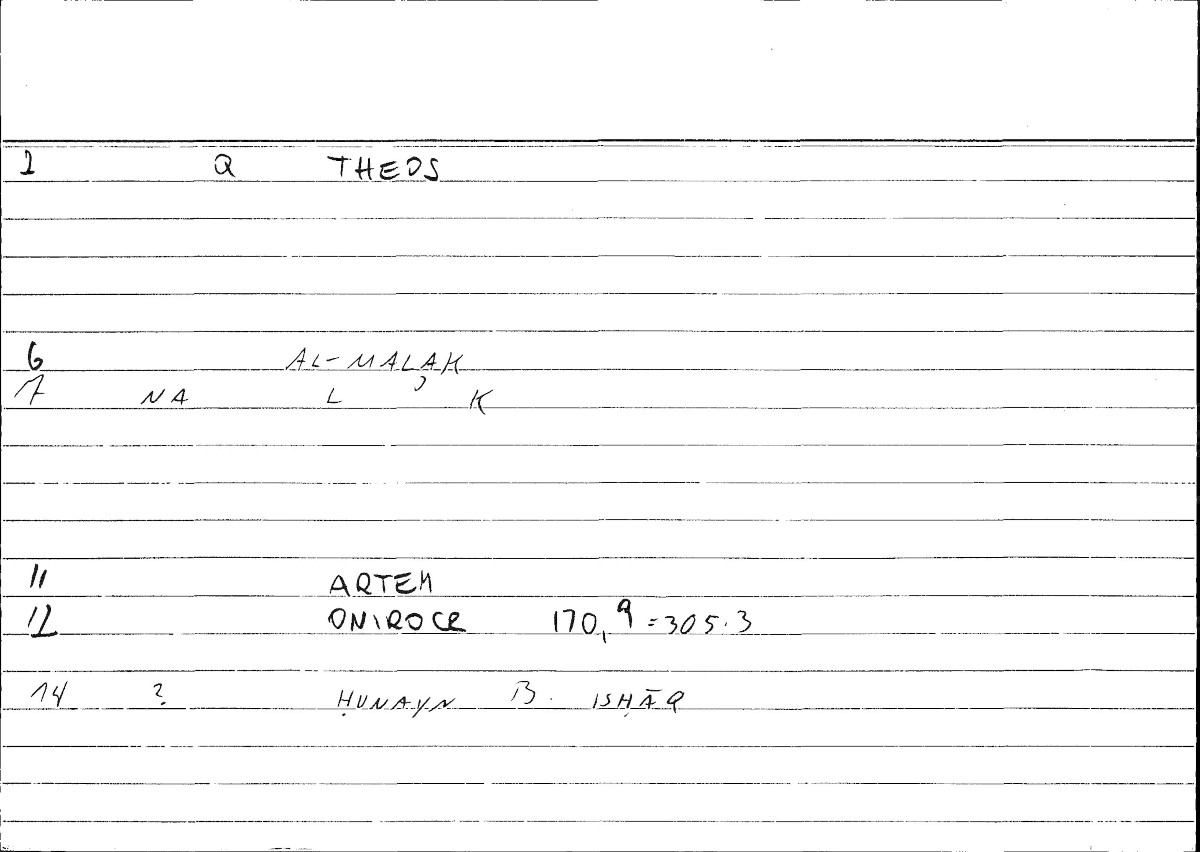 1 Q THEOS
6 AL-MALAK
7 NA L K
11 ARTEM
12 ONIROCR 170,9=305.3
14 ? ḤUNAYN B. ISḤĀQ